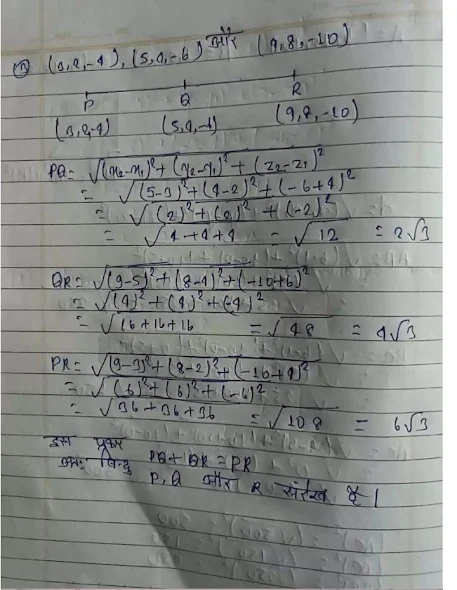 (3,2,-4), (5,4,-6) और (9,8,-10)
P Q R
(3,2,-4) (5,4,-6) (9,8,-10)
PQ = √(x₂-x₁)²+(y₂-y₁)²+(z₂-z₁)²
= √(5-3)²+(4-2)²+(-6+4)²
= √(2)²+(2)²+(-2)²
= √4+4+4 = √12 = 2√3
QR = √(9-5)²+(8-4)²+(-10+6)²
= √(4)²+(4)²+(-4)²
= √16+16+16 = √48 = 4√3
PR = √(9-3)²+(8-2)²+(-10+4)²
= √(6)²+(6)²+(-6)²
= √36+36+36 = √108 = 6√3
इस प्रकार PQ+QR=PR
अतः बिन्दु P,Q और R संरेख है।